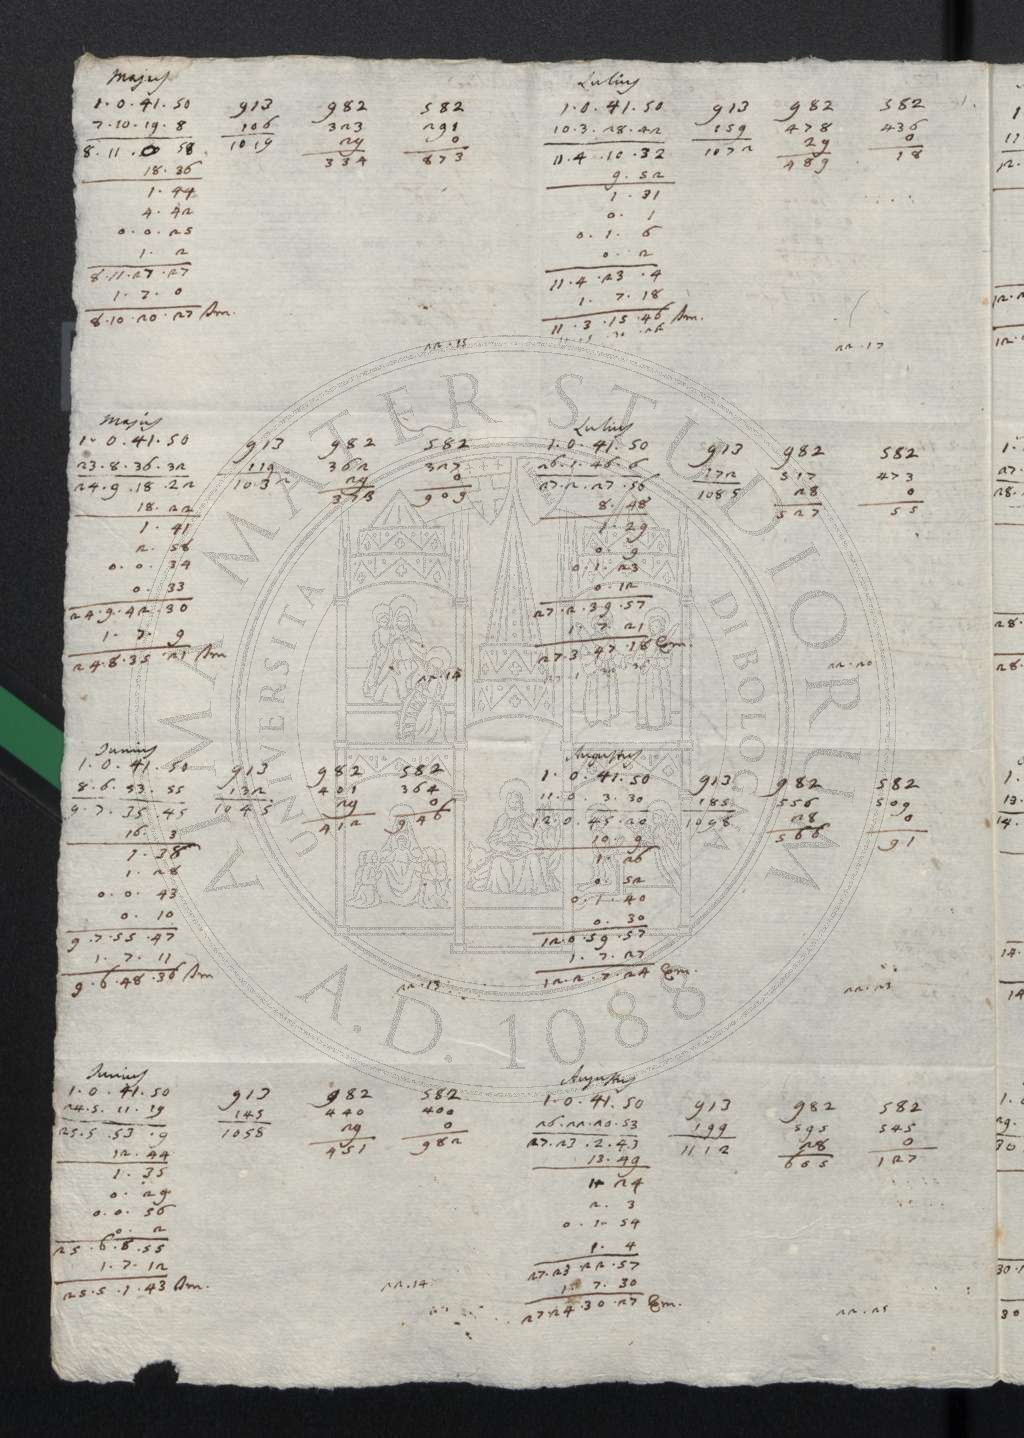 Majus
1.0.41.50 913 982 582
7.10.19.8 106 323 291
8.11.0.58 1019 29 0
18.36 334 873
1.44
4.42
0.0.25
1.2
8.11.27.27
1.7.0
8.10.20.27
22.15
Majus
1.0.41.50 913 982 582
23.8.36.32 119 362 327
24.9.18.22 1032 29 0
18.22 909
1.41
2.58
0.0.34
0.33
24.9.42.30
1.7.9
24.8.35.21
22.14
Junius
1.0.41.50 913 982 582
8.6.53.55 132 401 364
9.7.35.45 1045 29 0
16.3 412 946
1.38
1.28
0.0.43
0.10
9.7.55.47
1.7.11
9.6.48.36
22.13
Junius
1.0.41.50 913 982 582
24.5.11.19 145 440 400
25.5.53.9 1058 29 0
12.44 451 982
1.35
0.29
0.0.56
0.2
25.6.8.55
1.7.12
25.5.1.43
22.14
Lulius
1.0.41.50 913 982 582
10.3.28.42 159 478 436
11.4.10.32 1072 29 0
9.52 489 18
1.31
0.1
0.1.6
0.2
11.4.23.4
1.7.18
11.3.15.46
22.17
Lulius
1.0.41.50 913 982 582
26.1.46.6 172 517 473
27.2.27.56 1085 28 0
8.48 527 55
1.29
0.9
0.1.23
0.12
27.2.39.57
1.7.21
27.3.47.18
22.20
Augustus
1.0.41.50 913 982 582
11.0.3.30 185 556 509
12.0.45.20 1098 28 0
10.9 566 91
1.26
0.52
0.1.40
0.30
12.0.59.57
1.7.27
12.2.7.24
22.23
Augustus
1.0.41.50 913 982 582
26.22.20.53 199 595 545
27.23.2.43 1112 28 0
13.49 605 127
1.24
2.3
0.1.54
1.4
27.23.22.57
1.7.30
27.24.30.27
22.25
ALMA MATER STUDIORUM
UNIVERSITA DI BOLOGNA
A.D. 1088